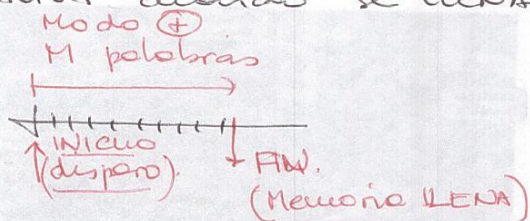 se LLENA
Modo +
M palabras
INICIO
(disparo).
FIN.
(Memoria LLENA)